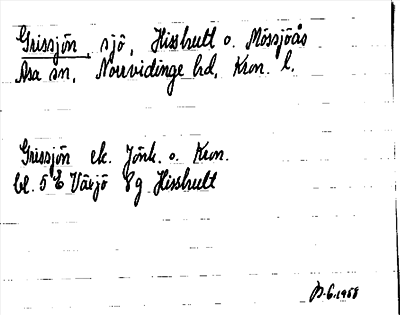 Grissjön, sjö, Hisshult o. Mossjöås
Asa sn, Norrvidinge hd, Kron. l.
Grissjön ek. Jönk. o. Kron.
bl. 5 E Växjö 8g Hisshult
6.1958